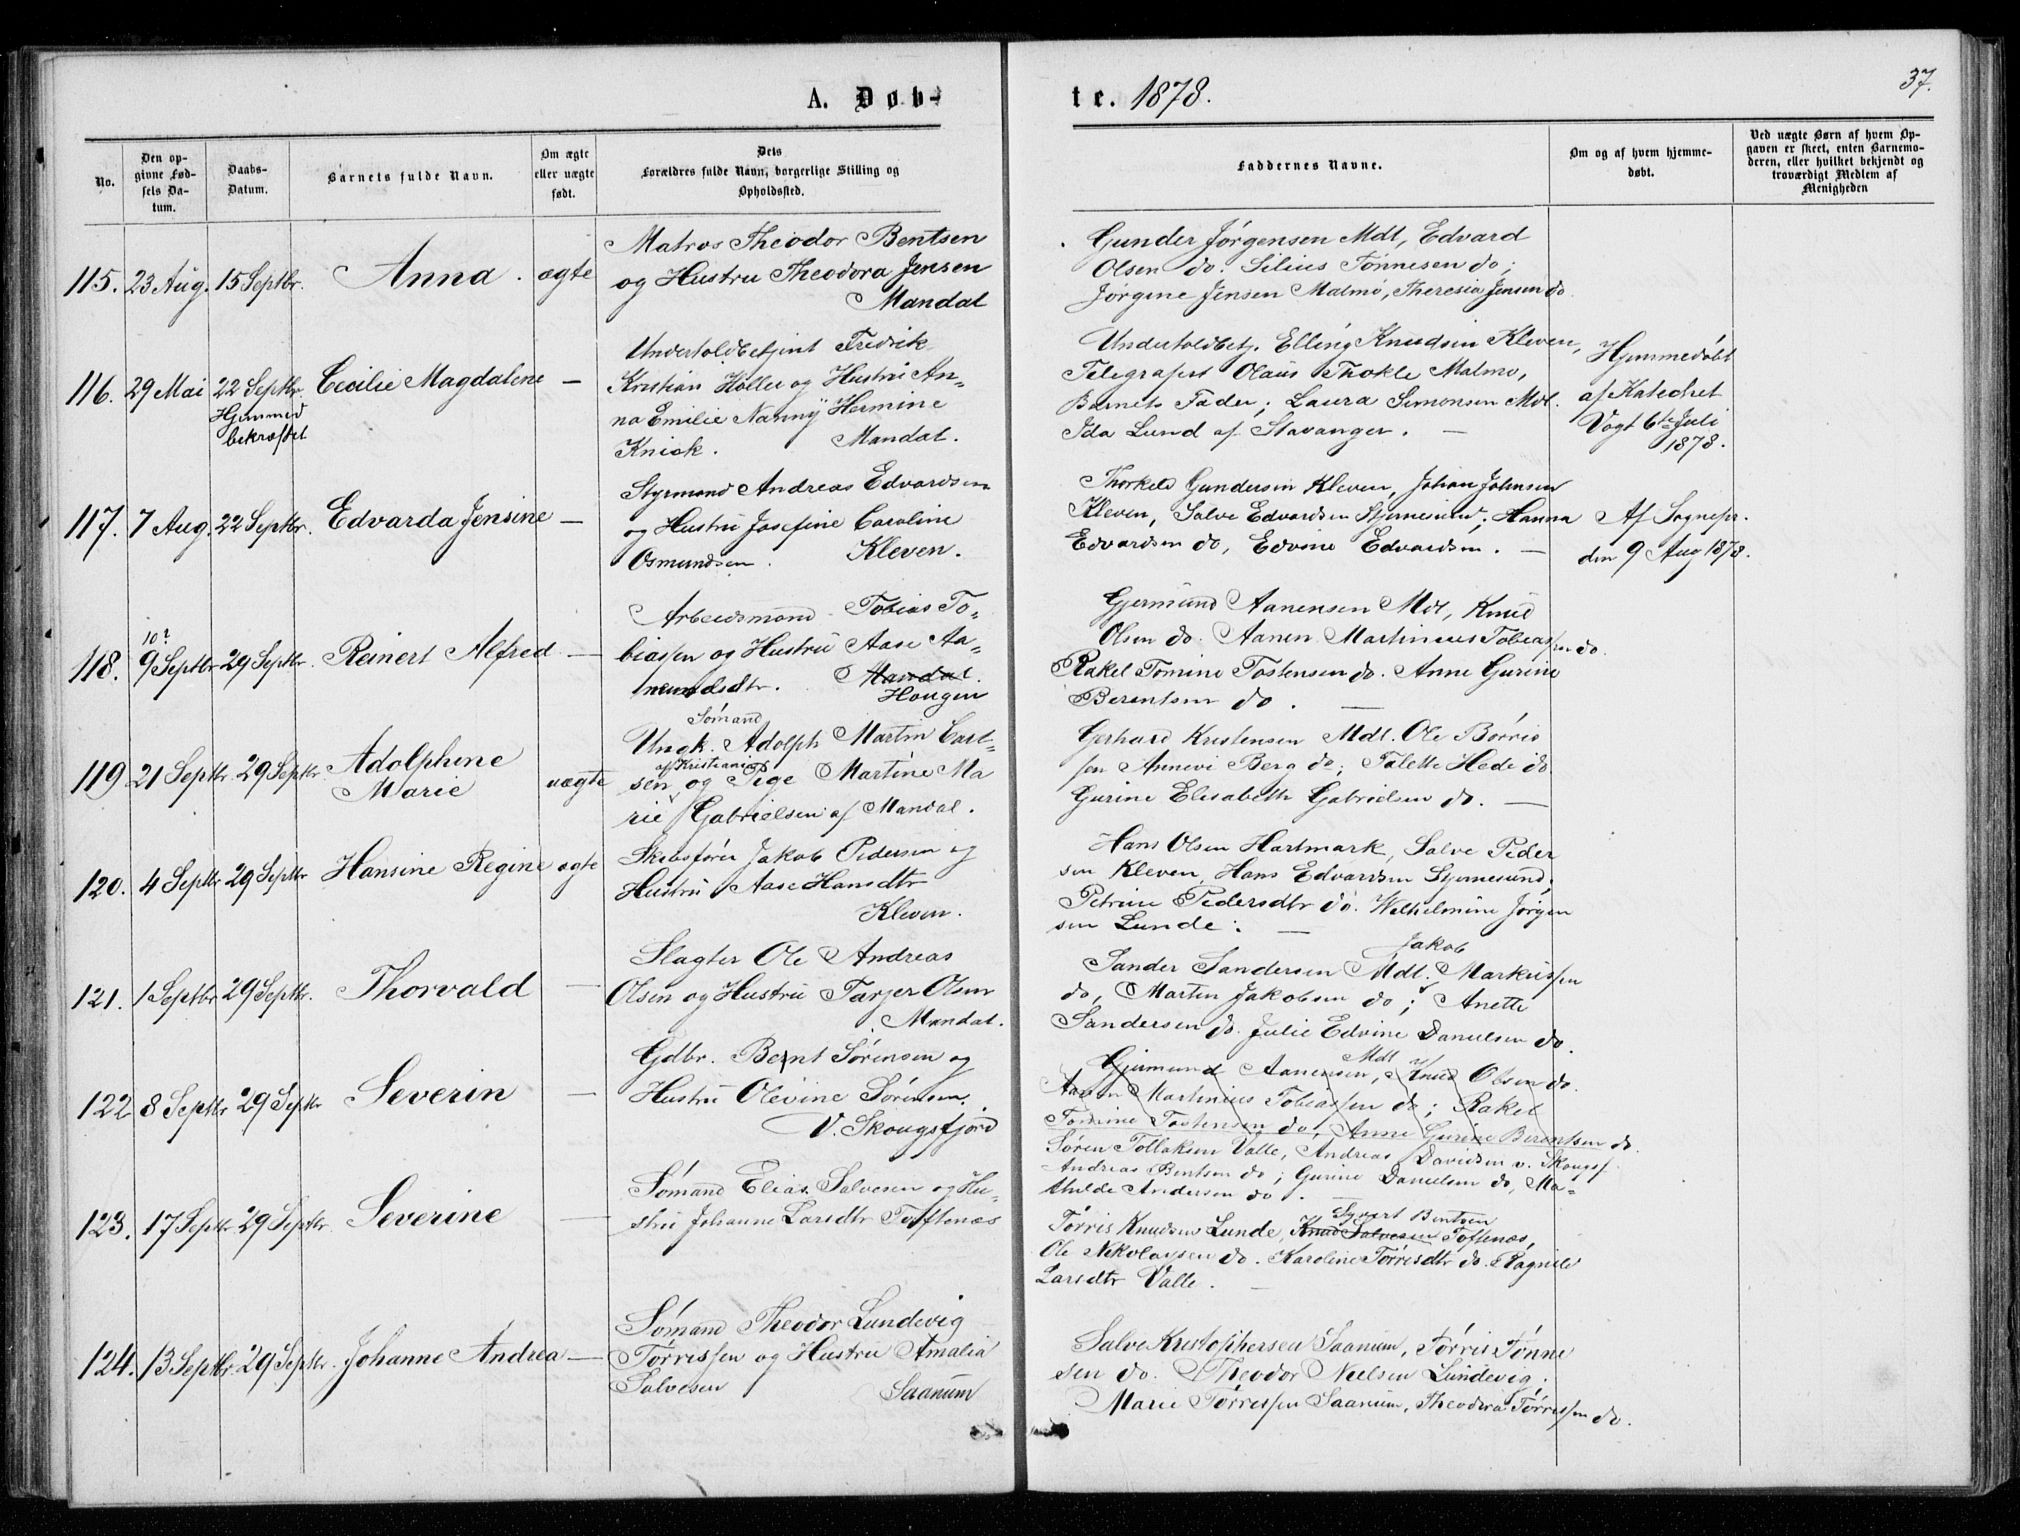 A. Døb-
te. 1878.
37.
No.
Den op-
givne Fød-
sels Da-
tum.
Daabs-
Datum.
Barnets fulde Navn.
Om ægte
eller uægte
født.
Dets
Forældres fulde Navn, borgerlige Stilling og
Opholdssted.
Faddernes Navne.
Om og af hvem hjemme-
døbt.
Ved uægte Børn af hvem Op-
gaven er skeet, enten Barnemo-
deren, eller hvilket bekjendt og
troværdigt Medlem af
Menigheden
115. 23 Aug. 15 Septbr. Anna. ægte
Matros Theodor Bentsen
og Hustru Theodora Jensen
Mandal
Gunder Jörgensen Mdl, Edvard
Olsen do. Silius Tönnesen do;
Jørgine Jensen Malmø, Theresia Jensen do.
116. 29 Mai 22 Septbr. Cecilie Magdalene —
Hjemmed
bekræftet
Undertoldbetjent Fredrik
Kristian Holler og Hustru An-
na Emilie Nanny Hermine
Kniok. Mandal.
Undertoldbetj. Elling Knudsen Kleven,
Telegrafist Olaus Thokle Malmø,
Barnets Fader; Laura Simonsen Mdl.
Ida Lund af Stavanger. —
Hjemmedöbt
af Katechet
Vogt 6te Juli
1878.
117. 7 Aug. 22 Septbr. Edvarda Jensine —
Styrmand Andreas Edvardsen
og Hustru Josefine Caroline
Osmundsen. Kleven.
Thorkild Gundersen Kleven, Johan Johnsen
Kleven, Salve Edvardsen Stjernesund; Hanna
Edvardsen do, Edvine Edvardsen. —
Af Sognepr.
den 9 Aug 1878.
10?
118. 9 Septbr 29 Septbr. Reinert Alfred —
Arbeidsmand Tobias To-
biassen og Hustru Aase Aa-
nundsdtr. Mandal.
Hougen
Gjermund Aanensen Mdl, Knud
Olsen do. Aanen Martinius Tobiassen do.
Rakel Tomine Tostensen do. Anne Gurine
Berentsen do. —
119 21 Septbr. 29 Septbr. Adolphine
Marie uægte
Sømand
Ungk. Adolph Martin Carl-
af Kristiania
sen, og Pige Martine Ma
rie Gabrielsen af Mandal.
Gerhard Kristensen Mdl. Ole Børris
sen Annevi Berg do; Talette Hede do.
Gurine Elisabeth Gabrielsen do. —
120. 4 Septbr 29 Septbr Hansine Regine ægte
Skibsfører Jakob Pedersen og
Hustru Aase Hansdtr
Kleven.
Hans Olsen Hartmark, Salve Peder
sen Kleven, Hans Edvardsen Stjernesund;
Petrine Pedersdtr do. Wilhelmine Jørgen
sen Lunde. —
121. 1 Septbr 29 Septbr. Thorvald —
Slagter Ole Andreas
Olsen og Hustru Tarjer Olsen
Mandal.
Jakob
Sander Sandersen Mdl. Markussen
do, Martin Jakobsen do; Anette
Sandersen do. Julie Edvine Danielsen do.
122 8 Septbr 29 Septbr Severin —
Gdbr. Bernt Sørensen og
Hustru Olevine Sørensen.
V. Skougsfjord
Mdl
Gjermund Aanensen, Knud Olsen do.
Aanen Martinius Tobiassen do; Rakel
Tomine Tostensen do, Anne Gurine Berentsen do
Søren Tollaksen Valle, Andreas Davidsen v. Skougsf.
Andreas Bentsen do; Gurine Danielsen do, Ma-
thilde Andersen do. —
123. 17 Septbr 29 Septbr. Severine —
Sømand Elias Salvesen og Hu-
stru Johanne Larsdtr Toftenæs
Syvert Bentsen
Tørris Knudsen Lunde, Knud Salvesen Toftenæs,
Ole Nikolaysen do. Karoline Tørrisdtr do. Ragnild
Larsdtr Valle. —
124. 13 Septbr. 29 Septbr. Johanne Andrea —
Sømand Theodor Lundevig
Tørrissen og Hustru Amalia
Salvesen Saanum
Salve Kristophersen Saanum, Tørris Tønne
sen do. Theodor Nielsen Lundevig.
Marie Tørrissen Saanum, Theodora Tørrissen do.